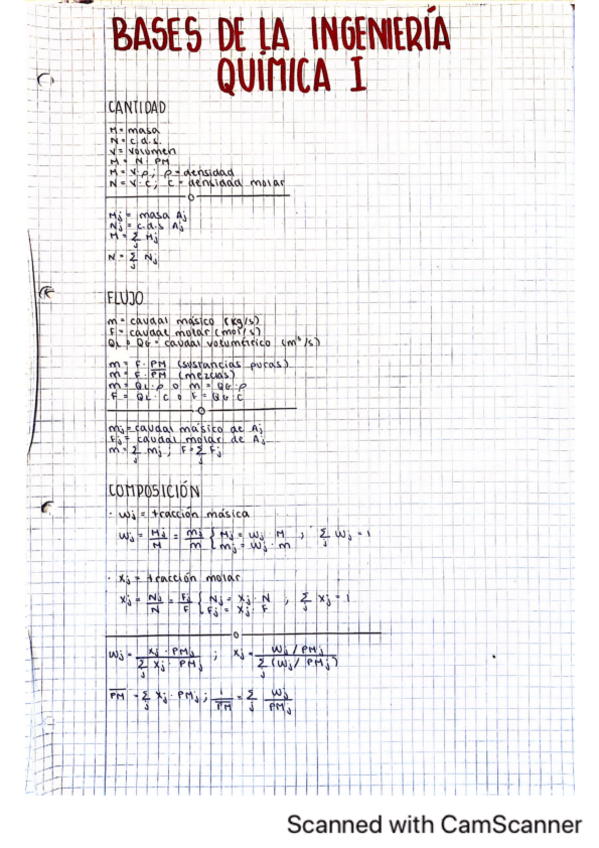 BASES DE LA INGENIERÍA
QUÍMICA I
CANTIDAD
M = masa
N = c.d.s.
V = volumen
M = N · PM
M = V·ρ; ρ = densidad
N = V·C; C = densidad molar
Mj = masa Aj
Nj = c.d.s Aj
M = Σj Mj
N = Σj Nj
FLUJO
m = caudal másico (kg/s)
F = caudal molar (mol/s)
QL o QG = caudal volumétrico (m³/s)
m = F · PM (sustancias puras)
m = F · P̅M̅ (mezclas)
m = QL·ρ o m = QG·ρ
F = QL·C o F = QG·C
mj = caudal másico de Aj
Fj = caudal molar de Aj
m = Σj mj; F = Σj Fj
COMPOSICIÓN
· wj = fracción másica
wj = Mj/M = mj/m { Mj = wj · M ; mj = wj · m ; Σj wj = 1
· xj = fracción molar
xj = Nj/N = Fj/F { Nj = xj · N ; Fj = xj · F ; Σj xj = 1
wj = xj · PMj / Σj xj · PMj ; xj = wj / PMj / Σj (wj / PMj)
P̅M̅ = Σj xj · PMj ; 1/P̅M̅ = Σj wj/PMj
Scanned with CamScanner